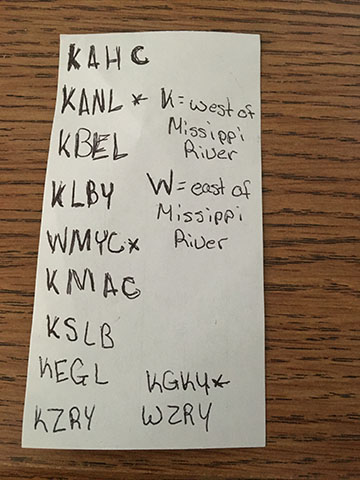 KAHC
KANL * K = west of
Missippi
River
KBEL
KLBY W = east of
Missippi
River
WMYC*
KMAC
KSLB
KEGL KGKY*
KZRY WZRY